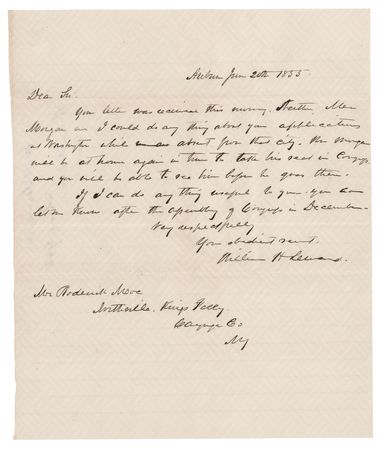 Auburn June 20th 1855
Dear Sir.
Your letter was received this morning. Neither Mr
Morgan nor I could do any thing about your applications
at Washington while absent from that city. Mr Morgan
will be at home again in time to take his seat in Congress
and you will be able to see him before he goes there.
If I can do any thing useful to you you can
let me know after the assembling of Congress in December
Very respectfully
Your obedient servt.
William H Seward.
Mr Roderick
Kings Ferry
Cayuga Co
NY